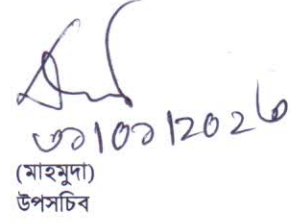 ৩১|০১|২০২৬
(মাহমুদা)
উপসচিব